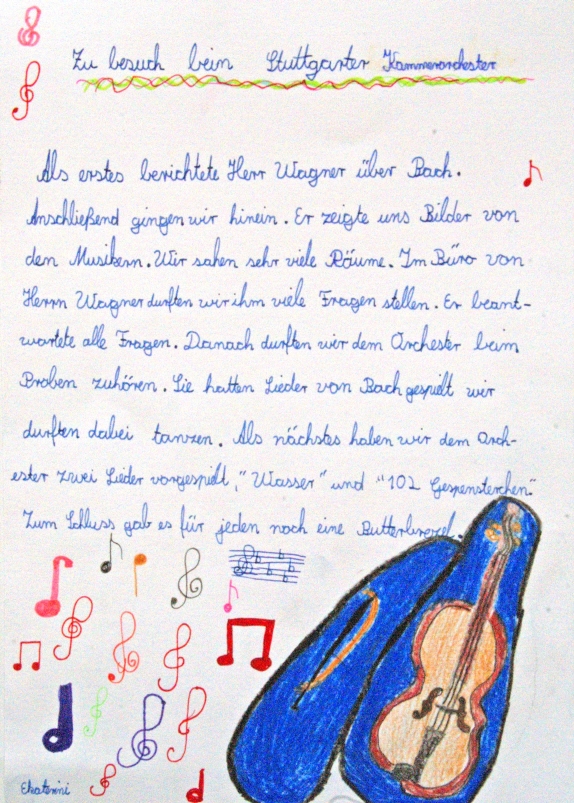 Zu besuch beim Stuttgarter Kammerorchester
Als erstes berichtete Herr Wagner über Bach.
Anschließend gingen wir hinein. Er zeigte uns Bilder von
den Musikern. Wir sahen sehr viele Räume. Im Büro von
Herrn Wagner durften wir ihm viele Fragen stellen. Er beant-
wortete alle Fragen. Danach durften wir dem Orchester beim
Proben zuhören. Sie hatten Lieder von Bach gespielt wir
durften dabei tanzen. Als nächstes haben wir dem Orch-
ester zwei Lieder vorgespielt, "Wasser" und "102 Gespensterchen".
Zum Schluss gab es für jeden noch eine Butterbrezel.
Ekaterini